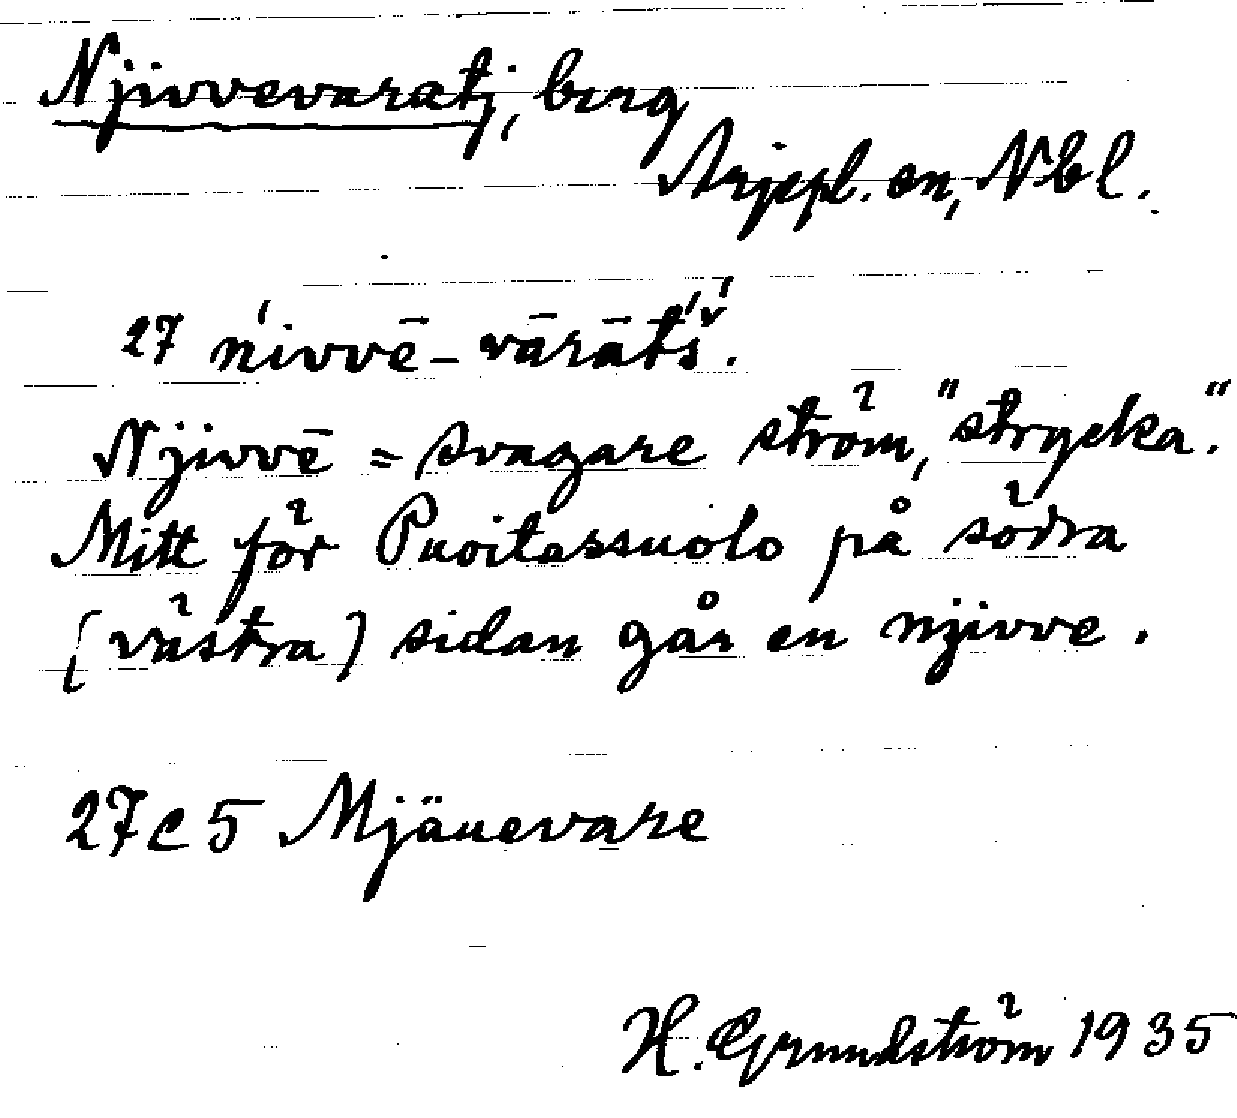 Njivvevaratj, berg
Arjepl. sn, Nbl.
27 ńivvē-vārāt́š́.
Njivvē = svagare ström, "strycka".
Mitt för Puoitessuolo på södra
(västra) sidan går en njivve.
27 c 5 Mjäuevare
H. Grundström 1935